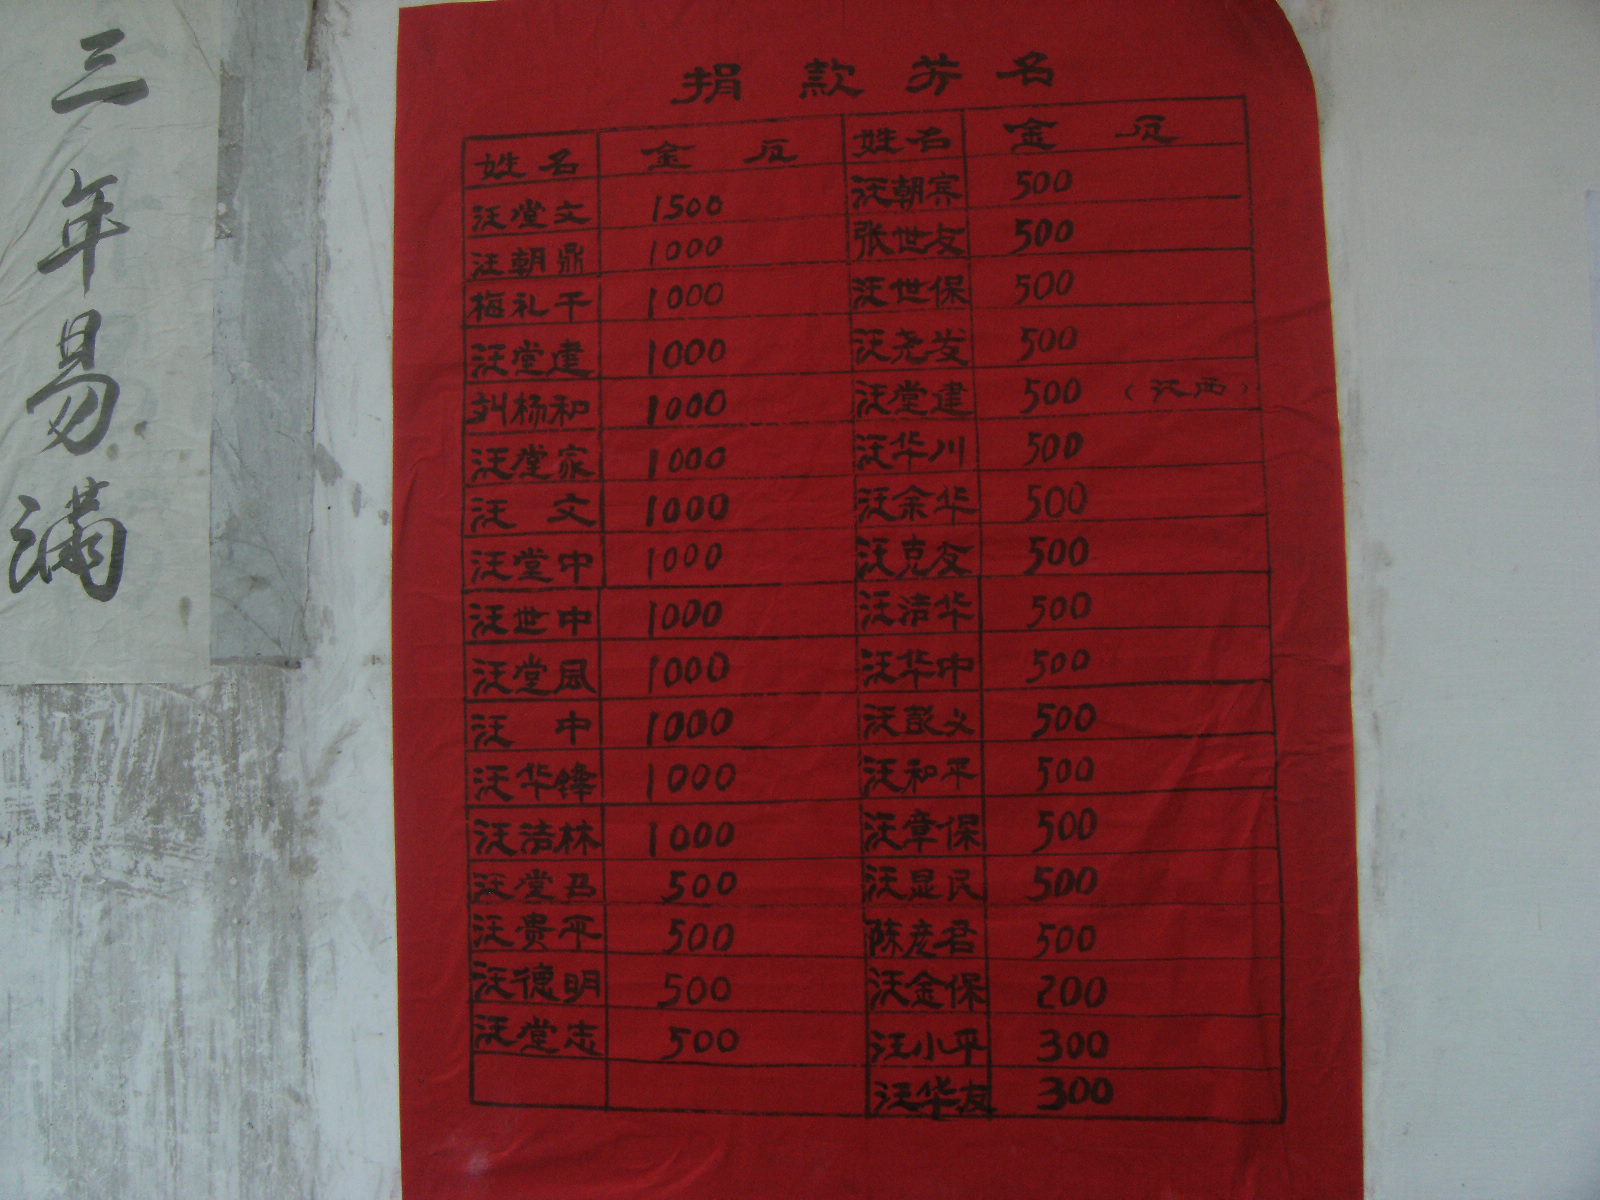 三年易满
捐款芳名
姓名 金 姓名 金
汪堂文 1500 汪朝宾 500
汪朝鼎 1000 张世友 500
梅礼干 1000 汪世保 500
汪堂建 1000 汪尧发 500
刘杨和 1000 汪堂建 500 (江西)
汪堂家 1000 汪华川 500
汪文 1000 汪余华 500
汪堂中 1000 汪克友 500
汪世中 1000 汪洁华 500
汪堂凤 1000 汪华中 500
汪中 1000 汪彭义 500
汪华锋 1000 汪和平 500
汪洁林 1000 汪章保 500
汪堂召 500 汪显民 500
汪贵平 500 陈彦君 500
汪德明 500 汪金保 200
汪堂志 500 汪小平 300
汪华友 300